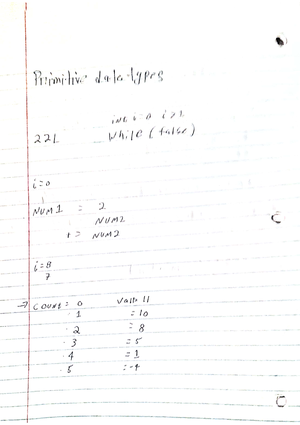 Primitive data types
int i=0 i>2
221 while (false)
i=0
NUM1 = 2
NUM2
= NUM2
i=8
7
→ COUNT = 0 11
1 = 10
2 = 8
3 = 5
4 = 1
5 = -4